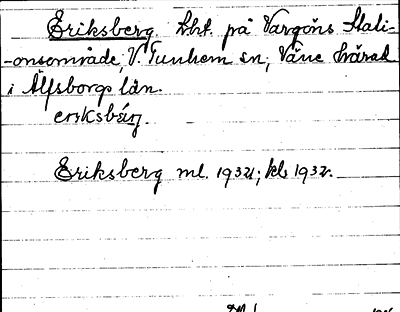 Eriksberg. Lht. på Vargöns Stati-
-onsområde, V. Tunhem sn; Väne härad
i Älfsborgs län.
Eriksberg ml. 1932; kls 1932.